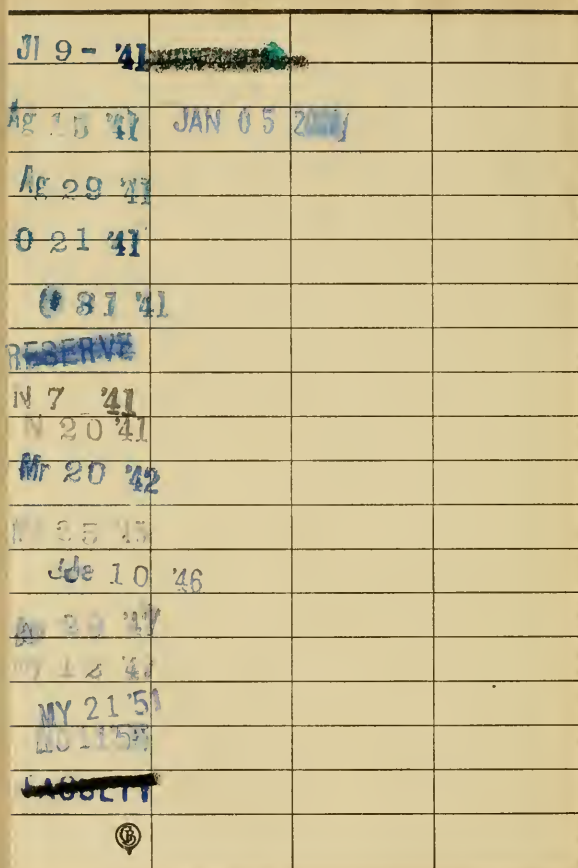 Jl 9 - '41
Ag 15 '41 JAN 05
Ag 29 '41
O 21 '41
31 '41
RESERVE
N 7 '41
N 20 '41
Mr 20 '42
25
10 '46
'47
My 12
MY 21 '51
FACULTY